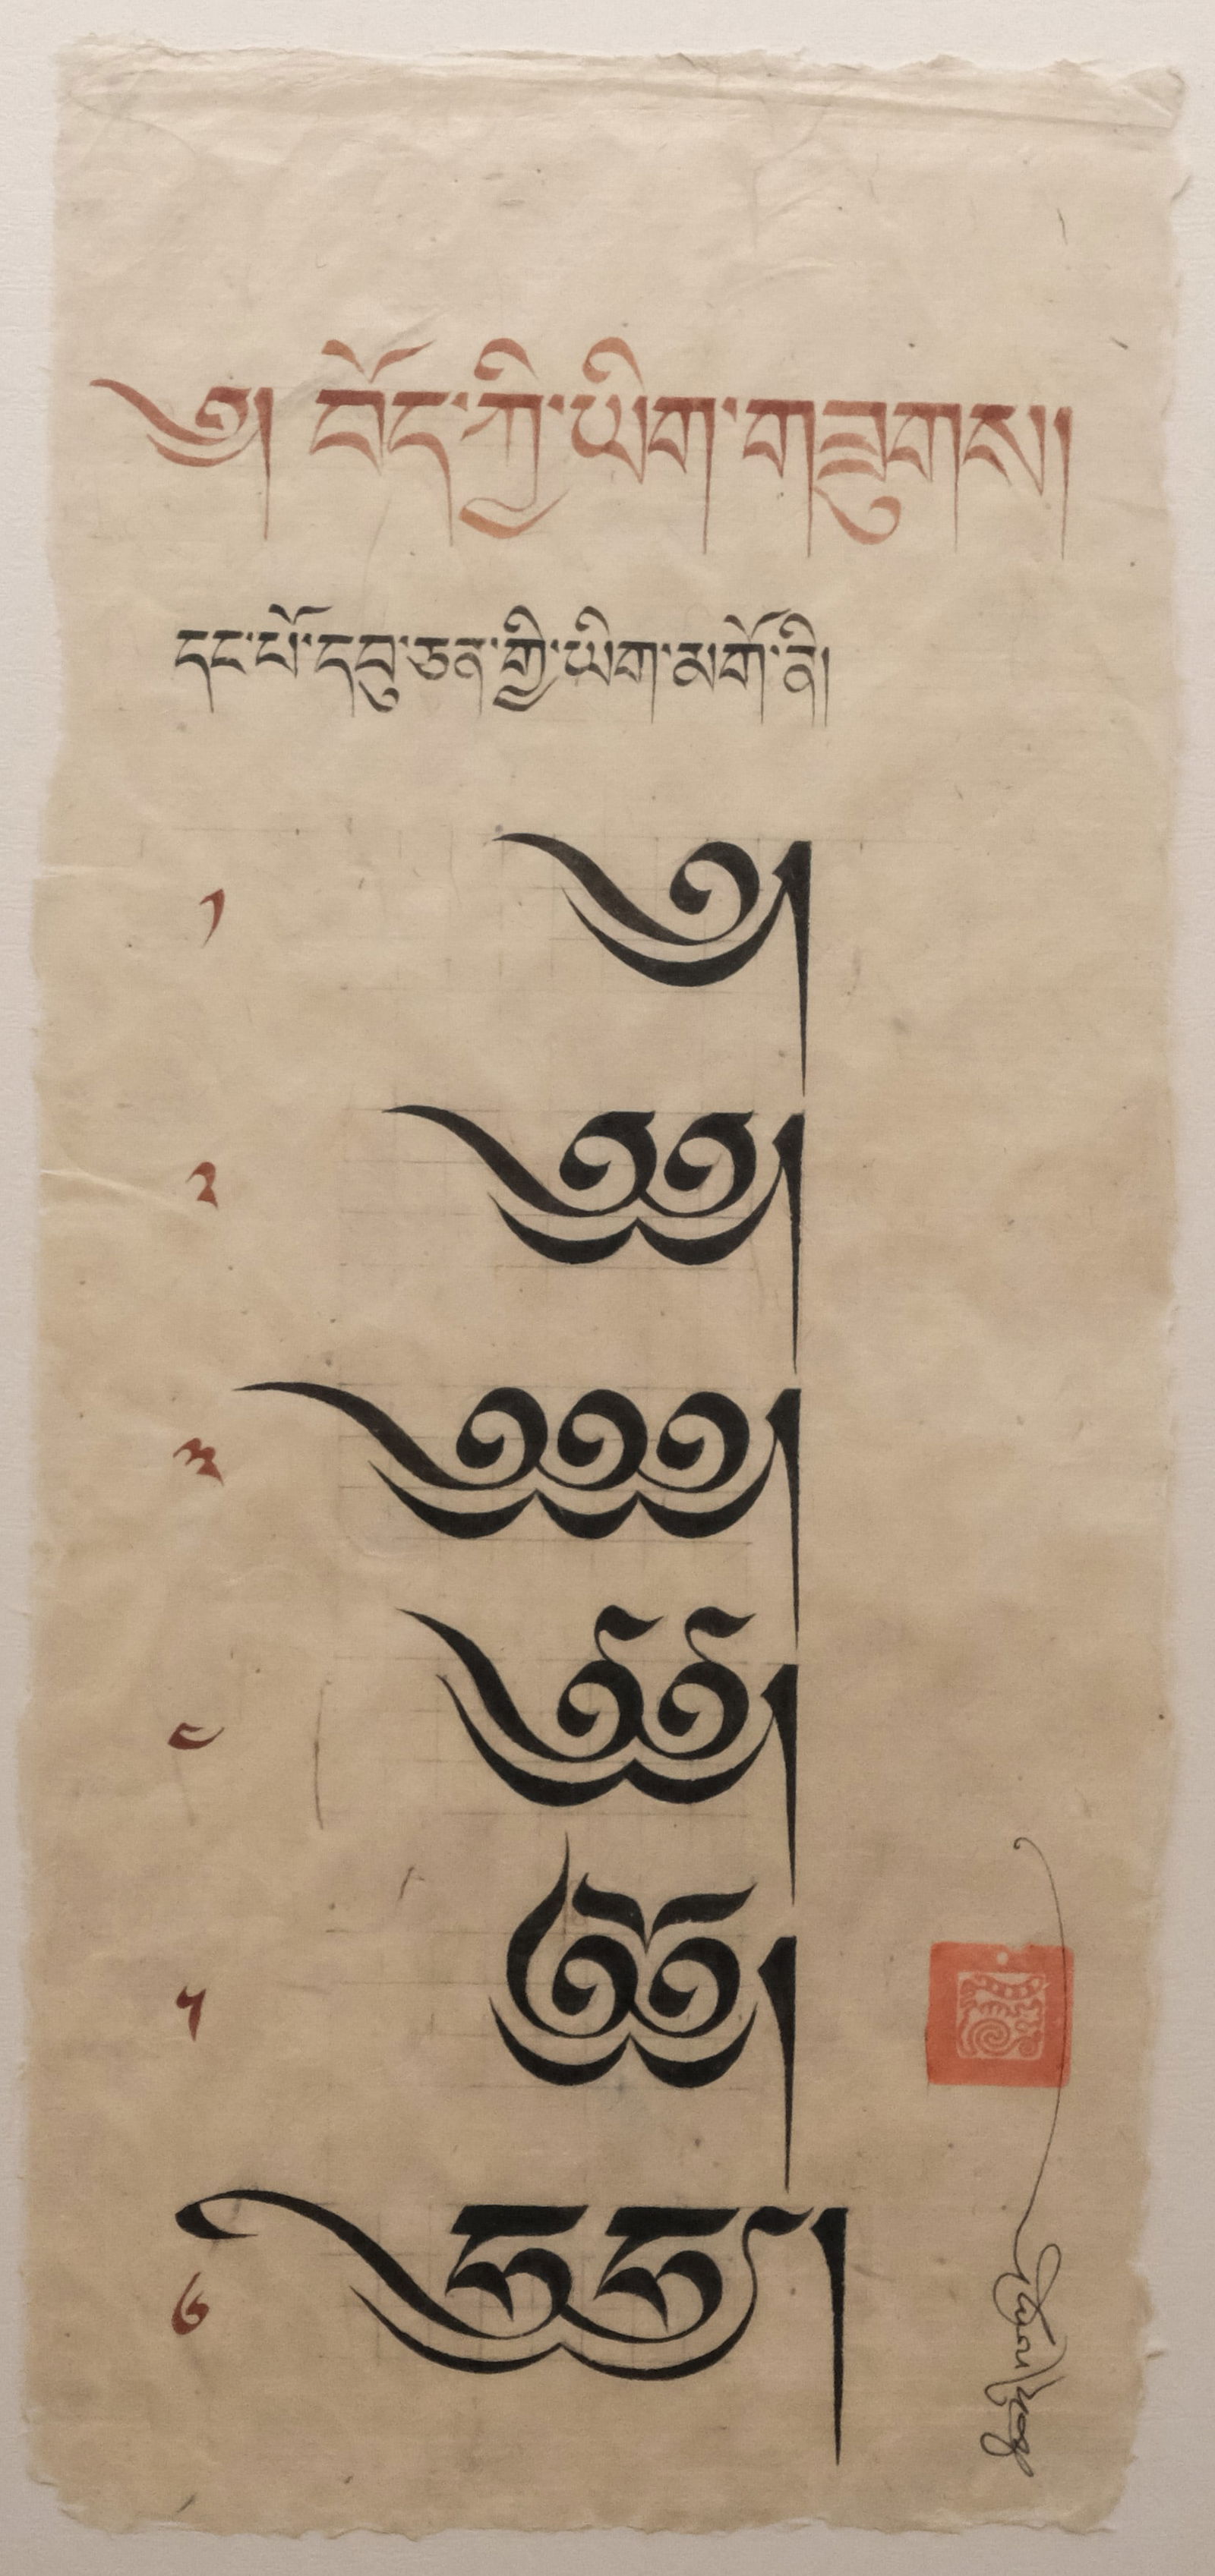 ༄། བོད་ཀྱི་ཡིག་གཟུགས།།
དང་པོ་དབུ་ཅན་གྱི་ཡིག་མགོ་ནི།
༡ ༄།
༢ ༄༅།
༣ ༄༅༅།
༤
༥
༦